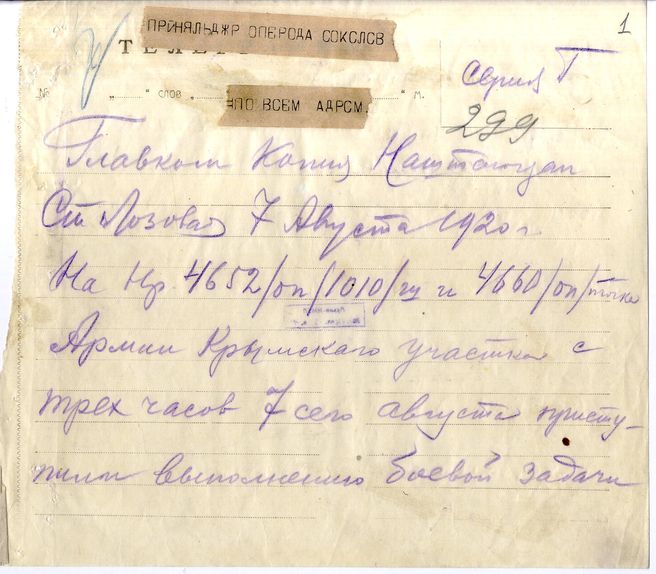 1
ПРИНЯЛЬДЖР ОПЕРОДА СОКСЛОВ
ТЕЛЕГР
Серия Г
№ „ “ слов „ “ м.
ПО ВСЕМ АДРСМ
299
Главком Копия Наштаюзап
Ст Лозовая 7 Августа 1920 г.
На Нр 4652/оп/1010/ш и 4660/оп/точка
Армии Крымскаго участка с
трех часов 7 сего августа присту-
пили выполнению боевой задачи